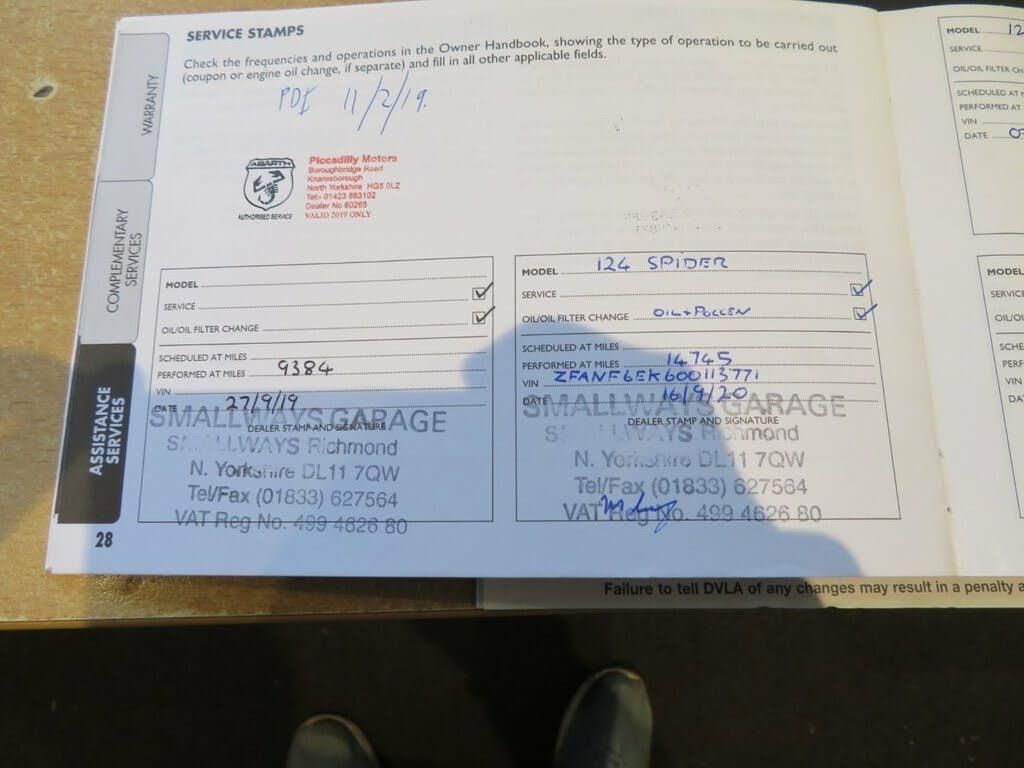 SERVICE STAMPS
Check the frequencies and operations in the Owner Handbook, showing the type of operation to be carried out
(coupon or engine oil change, if separate) and fill in all other applicable fields.
PDI 11/2/19.
WARRANTY
COMPLEMENTARY
SERVICES
ASSISTANCE
SERVICES
28
ABARTH
AUTHORISED SERVICE
Piccadilly Motors
Boroughbridge Road
Knaresborough
North Yorkshire HG5 0LZ
Tel:- 01423 863102
Dealer No 60265
VALID 2019 ONLY
MODEL
SERVICE
OIL/OIL FILTER CHANGE
SCHEDULED AT MILES
PERFORMED AT MILES 9384
VIN
DATE 27/9/19
DEALER STAMP AND SIGNATURE
SMALLWAYS GARAGE
SMALLWAYS Richmond
N. Yorkshire DL11 7QW
Tel/Fax (01833) 627564
VAT Reg No. 499 4626 80
MODEL 124 SPIDER
SERVICE
OIL/OIL FILTER CHANGE OIL + POLLEN
SCHEDULED AT MILES
PERFORMED AT MILES 14745
VIN ZFANF6EK600113771
DATE 16/9/20
DEALER STAMP AND SIGNATURE
SMALLWAYS GARAGE
SMALLWAYS Richmond
N. Yorkshire DL11 7QW
Tel/Fax (01833) 627564
VAT Reg No. 499 4626 80
MODEL 12
SERVICE
OIL/OIL FILTER CH
SCHEDULED AT M
PERFORMED AT
VIN
DATE 0
MODEL
SERVICE
OIL/OI
SCHE
PERF
VIN
DA
Failure to tell DVLA of any changes may result in a penalty a